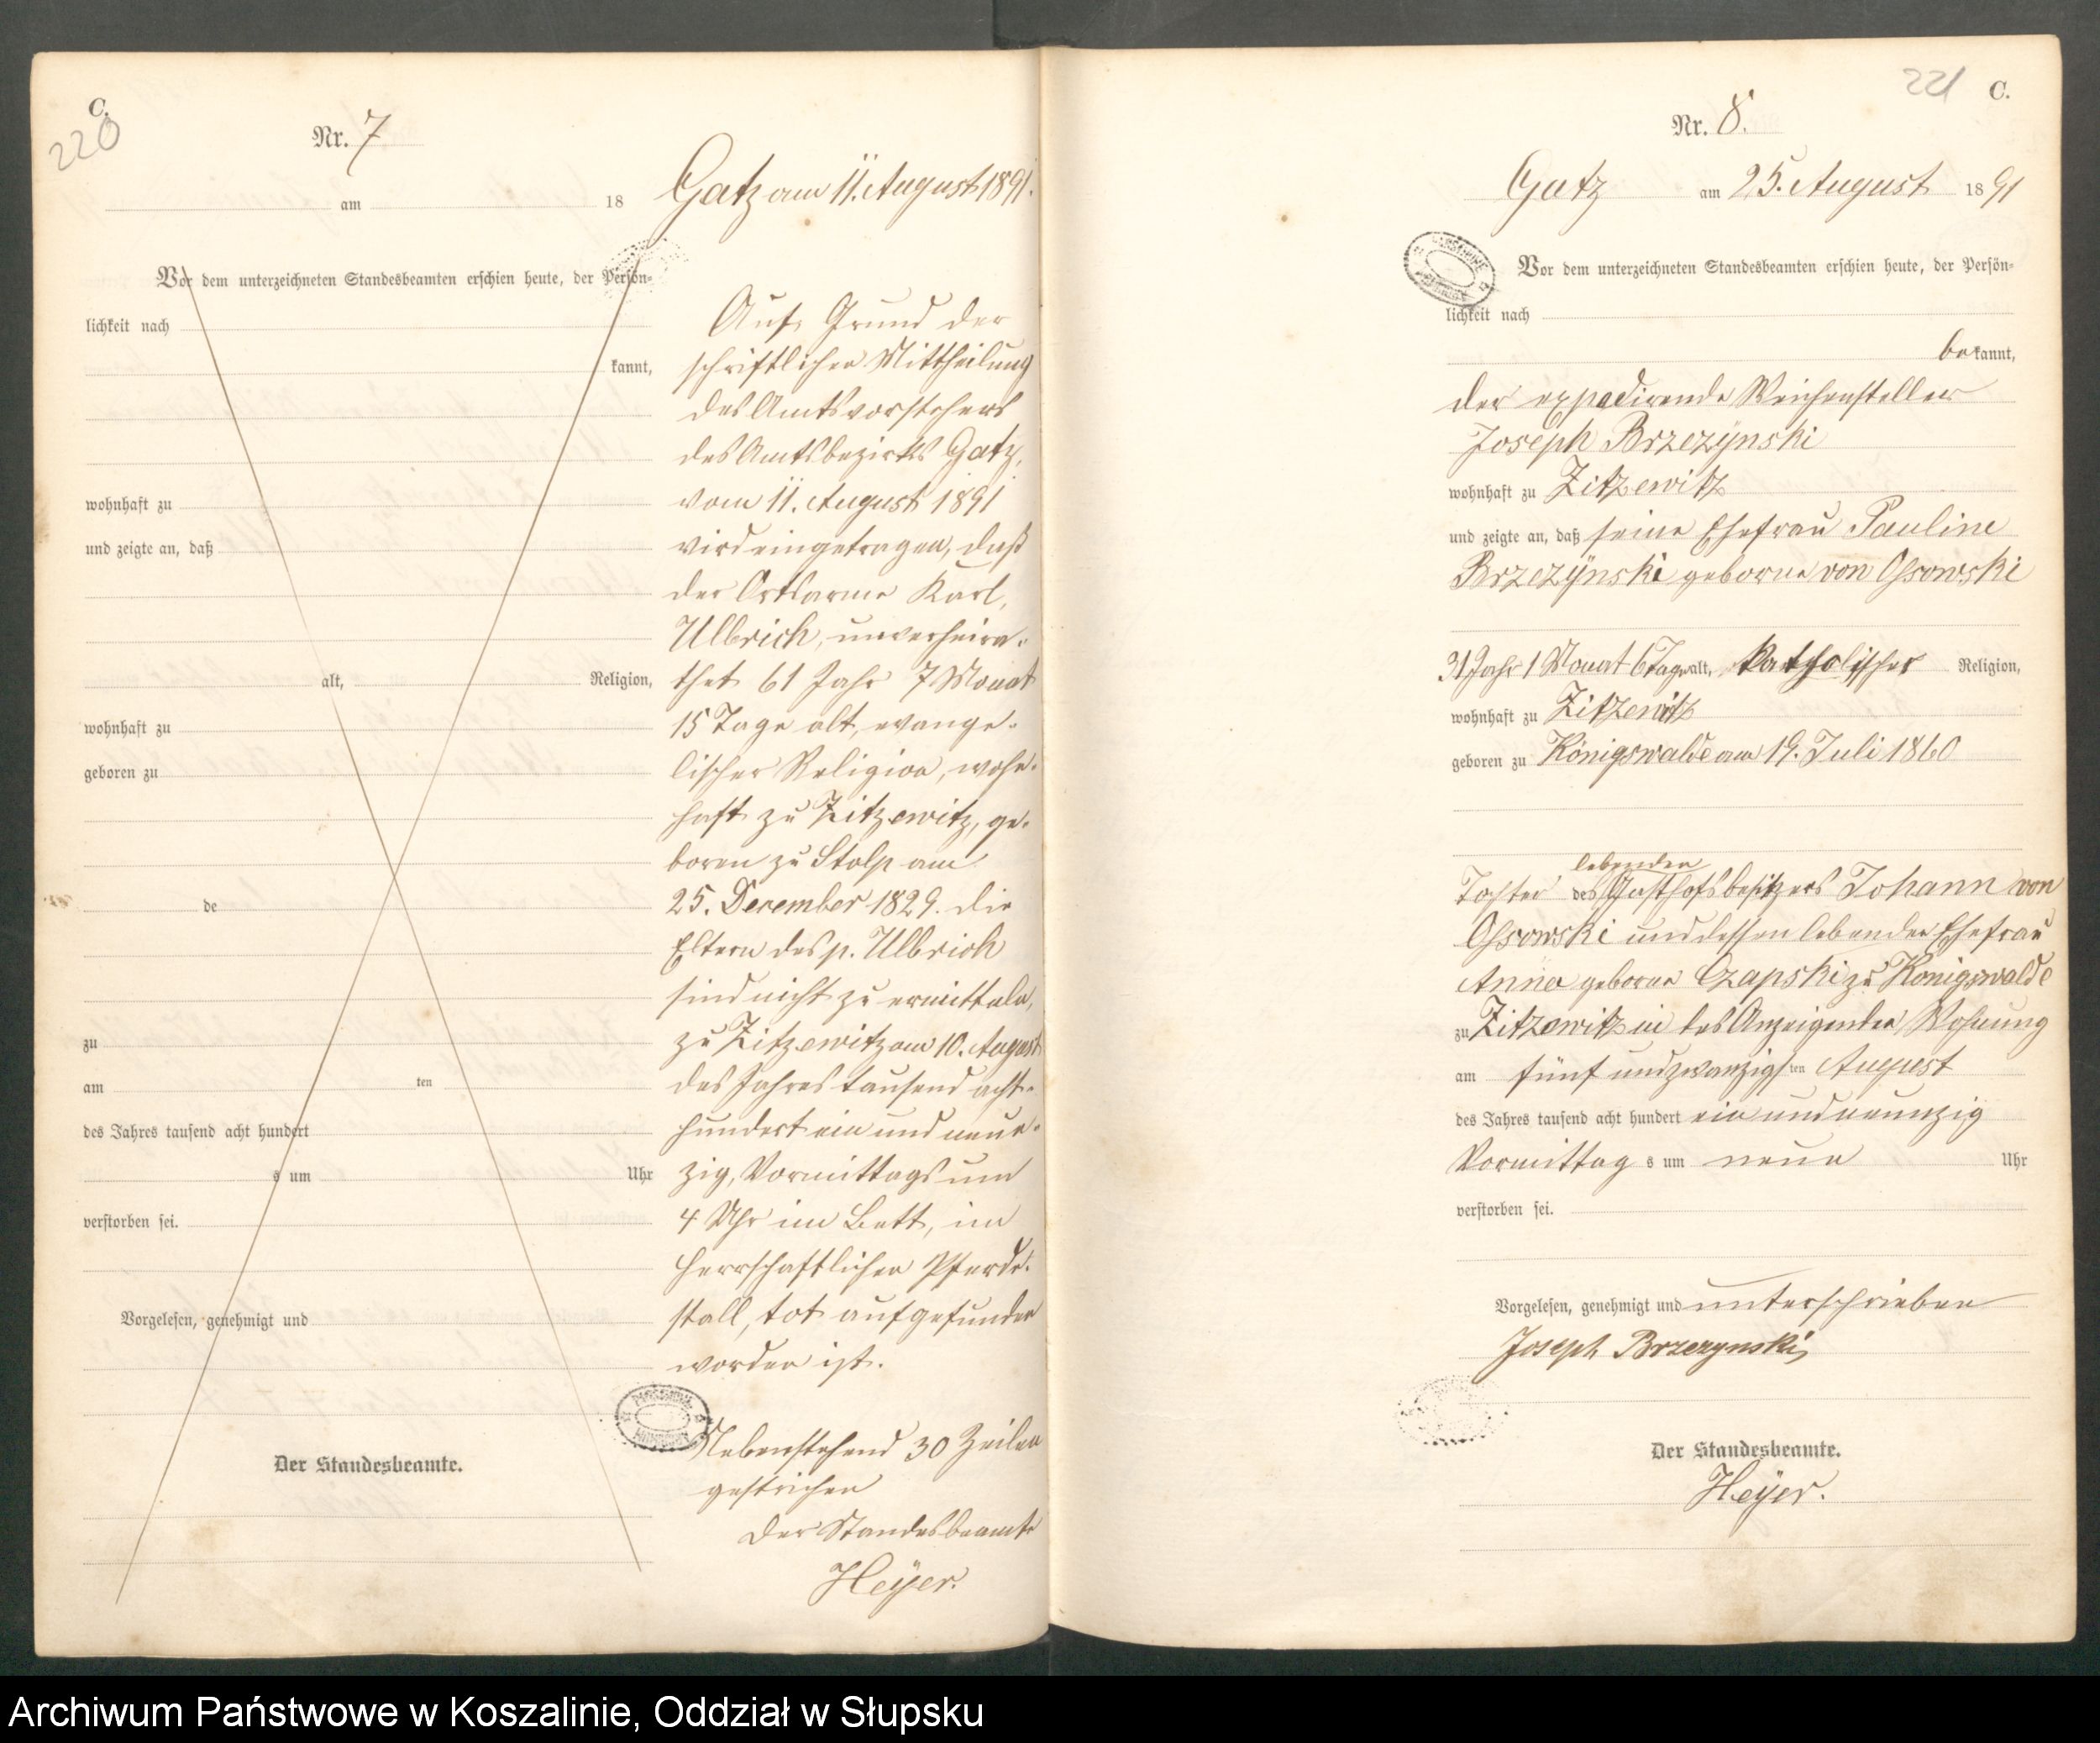 C.
220
Nr. 7
am 18
Gatz am 11. August 1891.
Vor dem unterzeichneten Standesbeamten erschien heute, der Persön-
lichkeit nach
kannt,
wohnhaft zu
und zeigte an, daß
alt, Religion,
wohnhaft zu
geboren zu
de
zu
am ten
des Jahres tausend acht hundert
s um Uhr
verstorben sei.
Vorgelesen, genehmigt und
Der Standesbeamte.
Auf Grund der
schriftlichen Mittheilung
des Amtsvorstehers
des Amtsbezirks Gatz,
vom 11. August 1891
wird eingetragen, daß
der Ortsarme Karl,
Ulbrich, unverheira-
thet 61 Jahr 7 Monat
15 Tage alt, evange-
lischer Religion, wohn-
haft zu Zitzewitz, ge-
boren zu Stolp am
25. December 1829. die
Eltern des p. Ulbrich
sind nicht zu ermitteln,
zu Zitzewitz am 10. August
des Jahres tausend acht-
hundert ein und neun-
zig, Vormittags um
4 Uhr im Bett, im
herrschaftlichen Pferde-
stall, tot aufgefunden
worden ist.
Nebenstehend 30 Zeilen
gestrichen
Der Standesbeamte
Heÿer.
221 C.
Nr. 8.
Gatz am 25. August 1891
Vor dem unterzeichneten Standesbeamten erschien heute, der Persön-
lichkeit nach
bekannt,
der expedirende Weichensteller
Joseph Brzezÿnski
wohnhaft zu Zitzewitz
und zeigte an, daß seine Ehefrau Pauline
Brzezÿnski geborne von Ossowski
31 Jahr 1 Monat 6 Tage alt, katholischer Religion,
wohnhaft zu Zitzewitz
geboren zu Königswalde am 19. Juli 1860
lebenden
Tochter des Gasthofsbesitzers Johann von
Ossowski und dessen lebenden Ehefrau
Anna geborne Czapski zu Königswalde
zu Zitzewitz in des Anzeigenden Wohnung
am fünf und zwanzigsten August
des Jahres tausend acht hundert ein und neunzig
Vormittag s um neun Uhr
verstorben sei.
Vorgelesen, genehmigt und unterschrieben
Joseph Brzezynski
Der Standesbeamte.
Heÿer.
Archiwum Państwowe w Koszalinie, Oddział w Słupsku